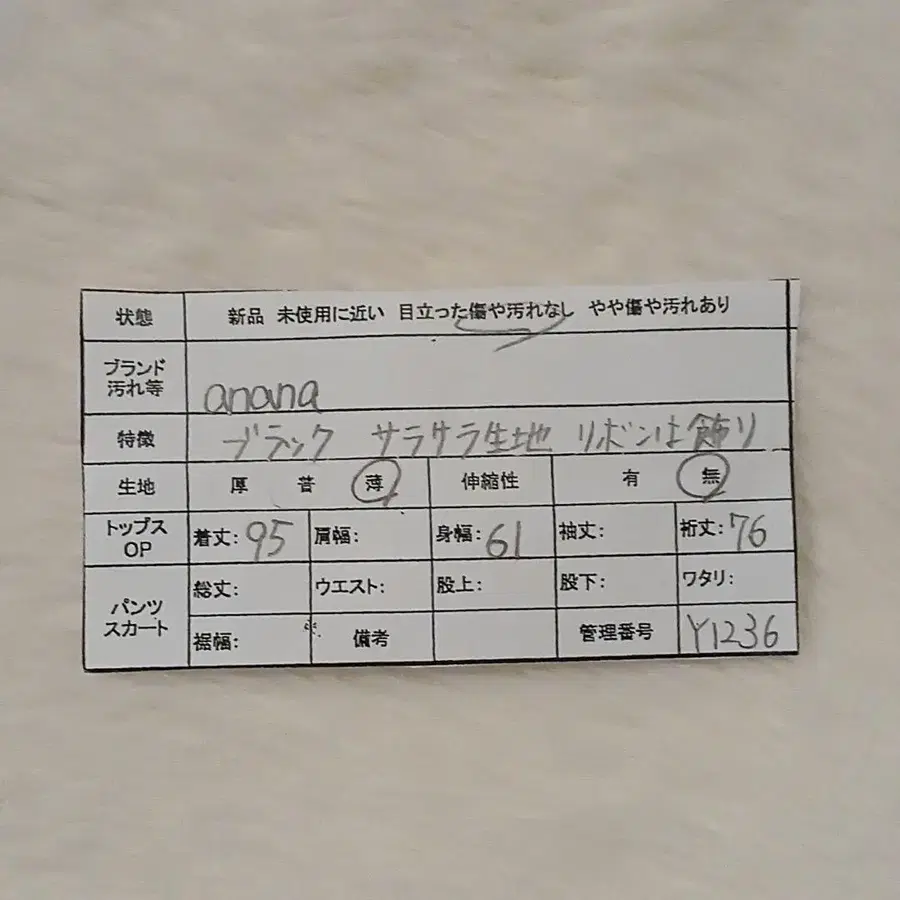 状態 新品 未使用に近い 目立った傷や汚れなし やや傷や汚れあり
ブランド
汚れ等 anana
特徴 ブラック サラサラ生地 リボンは飾り
生地 厚 普 薄 伸縮性 有 無
トップス
OP 着丈:95 肩幅: 身幅:61 袖丈: 裄丈:76
パンツ
スカート 総丈: ウエスト: 股上: 股下: ワタリ:
裾幅: 備考 管理番号 Y1236